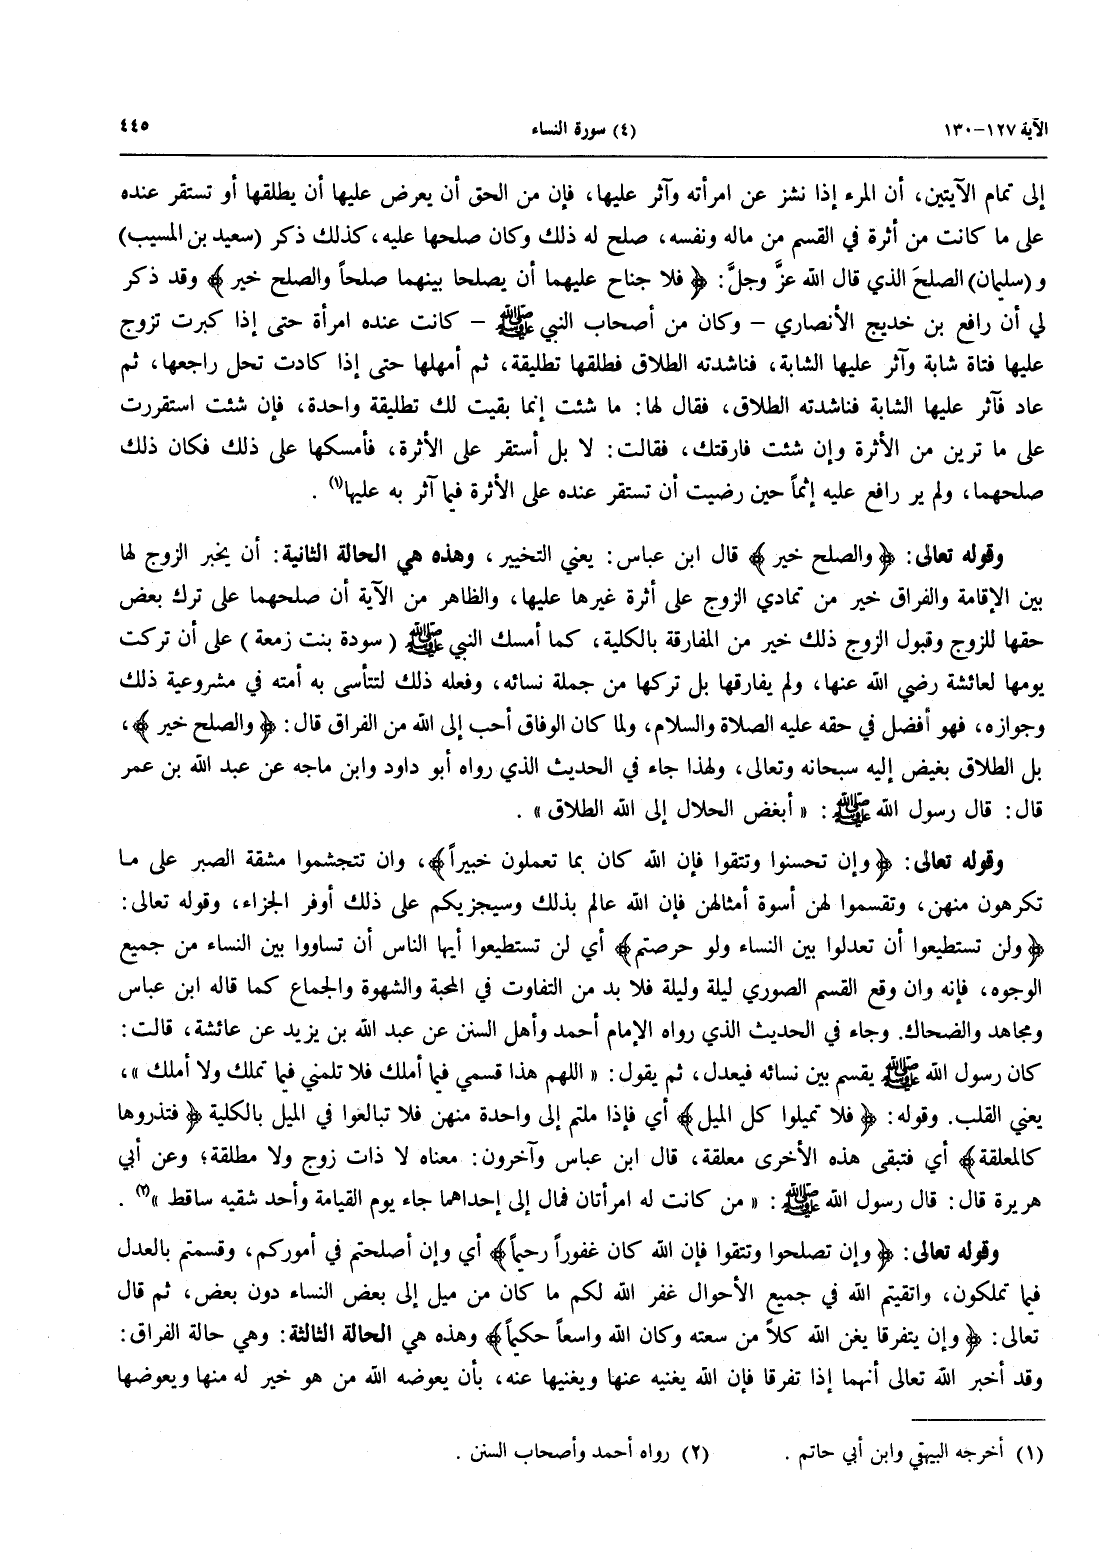 الآية ١٢٧-١٣٠
(٤) سورة النساء
٤٤٥
إلى تمام الآيتين، أن المرء إذا نشز عن امرأته وآثر عليها، فإن من الحق أن يعرض عليها أن يطلقها أو تستقر عنده
على ما كانت من أثرة في القسم من ماله ونفسه، صلح له ذلك وكان صلحها عليه، كذلك ذكر (سعيد بن المسيب)
و (سليمان) الصلحَ الذي قال الله عزَّ وجلَّ: ﴿ فلا جناح عليهما أن يصلحا بينهما صلحاً والصلح خير ﴾ وقد ذكر
لي أن رافع بن خديج الأنصاري – وكان من أصحاب النبي ﷺ – كانت عنده امرأة حتى إذا كبرت تزوج
عليها فتاة شابة وآثر عليها الشابة، فناشدته الطلاق فطلقها تطليقة، ثم أمهلها حتى إذا كادت تحل راجعها، ثم
عاد فآثر عليها الشابة فناشدته الطلاق، فقال لها: ما شئت إنما بقيت لك تطليقة واحدة، فإن شئت استقررت
على ما ترين من الأثرة وإن شئت فارقتك، فقالت: لا بل أستقر على الأثرة، فأمسكها على ذلك فكان ذلك
صلحهما، ولم ير رافع عليه إثماً حين رضيت أن تستقر عنده على الأثرة فيما آثر به عليها(١) .
وقوله تعالى: ﴿ والصلح خير ﴾ قال ابن عباس: يعني التخيير، وهذه هي الحالة الثانية: أن يخبر الزوج لها
بين الإقامة والفراق خير من تمادي الزوج على أثرة غيرها عليها، والظاهر من الآية أن صلحهما على ترك بعض
حقها للزوج وقبول الزوج ذلك خير من المفارقة بالكلية، كما أمسك النبي ﷺ ( سودة بنت زمعة ) على أن تركت
يومها لعائشة رضي الله عنها، ولم يفارقها بل تركها من جملة نسائه، وفعله ذلك لتتأسى به أمته في مشروعية ذلك
وجوازه، فهو أفضل في حقه عليه الصلاة والسلام، ولما كان الوفاق أحب إلى الله من الفراق قال: ﴿ والصلح خير ﴾،
بل الطلاق بغيض إليه سبحانه وتعالى، ولهذا جاء في الحديث الذي رواه أبو داود وابن ماجه عن عبد الله بن عمر
قال: قال رسول الله ﷺ : « أبغض الحلال إلى الله الطلاق » .
وقوله تعالى: ﴿ وإن تحسنوا وتتقوا فإن الله كان بما تعملون خبيراً ﴾، وان تتجشموا مشقة الصبر على ما
تكرهون منهن، وتقسموا لهن أسوة أمثالهن فإن الله عالم بذلك وسيجزيكم على ذلك أوفر الجزاء، وقوله تعالى:
﴿ ولن تستطيعوا أن تعدلوا بين النساء ولو حرصتم ﴾ أي لن تستطيعوا أيها الناس أن تساووا بين النساء من جميع
الوجوه، فإنه وان وقع القسم الصوري ليلة وليلة فلا بد من التفاوت في المحبة والشهوة والجماع كما قاله ابن عباس
ومجاهد والضحاك. وجاء في الحديث الذي رواه الإمام أحمد وأهل السنن عن عبد الله بن يزيد عن عائشة، قالت:
كان رسول الله ﷺ يقسم بين نسائه فيعدل، ثم يقول: « اللهم هذا قسمي فيما أملك فلا تلمني فيما تملك ولا أملك »،
يعني القلب. وقوله: ﴿ فلا تميلوا كل الميل ﴾ أي فإذا ملتم إلى واحدة منهن فلا تبالغوا في الميل بالكلية ﴿ فتذروها
كالمعلقة ﴾ أي فتبقى هذه الأخرى معلقة، قال ابن عباس وآخرون: معناه لا ذات زوج ولا مطلقة؛ وعن أبي
هريرة قال: قال رسول الله ﷺ : « من كانت له امرأتان فمال إلى إحداهما جاء يوم القيامة وأحد شقيه ساقط »(٢) .
وقوله تعالى: ﴿ وإن تصلحوا وتتقوا فإن الله كان غفوراً رحيماً ﴾ أي وإن أصلحتم في أموركم، وقسمتم بالعدل
فيما تملكون، واتقيتم الله في جميع الأحوال غفر الله لكم ما كان من ميل إلى بعض النساء دون بعض، ثم قال
تعالى: ﴿ وإن يتفرقا يغن الله كلاً من سعته وكان الله واسعاً حكيماً ﴾ وهذه هي الحالة الثالثة: وهي حالة الفراق:
وقد أخبر الله تعالى أنهما إذا تفرقا فإن الله يغنيه عنها ويغنيها عنه، بأن يعوضه الله من هو خير له منها ويعوضها
(١) أخرجه البيهقي وابن أبي حاتم .
(٢) رواه أحمد وأصحاب السنن .